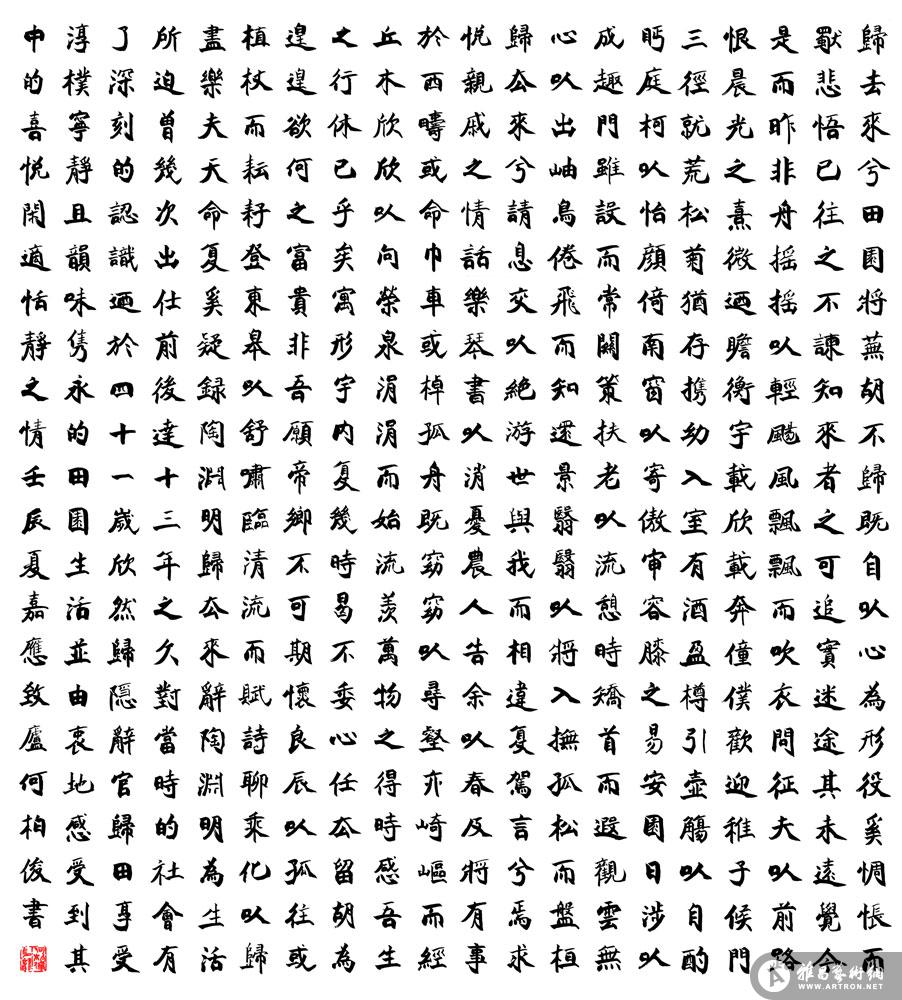 歸去來兮田園將蕪胡不歸既自以心為形役奚惆悵而
獨悲悟已往之不諫知來者之可追實迷途其未遠覺今
是而昨非舟搖搖以輕颺風飄飄而吹衣問征夫以前路
恨晨光之熹微迺瞻衡宇載欣載奔僮僕歡迎稚子候門
三徑就荒松菊猶存攜幼入室有酒盈樽引壺觴以自酌
眄庭柯以怡顏倚南窗以寄傲審容膝之易安園日涉以
成趣門雖設而常關策扶老以流憩時矯首而遐觀雲無
心以出岫鳥倦飛而知還景翳翳以將入撫孤松而盤桓
歸去來兮請息交以絕游世與我而相違复駕言兮焉求
悅親戚之情話樂琴書以消憂農人告余以春及將有事
於西疇或命巾車或棹孤舟既窈窕以尋壑亦崎嶇而經
丘木欣欣以向榮泉涓涓而始流羨萬物之得時感吾生
之行休已乎矣寓形宇內复幾時曷不委心任去留胡為
遑遑欲何之富貴非吾願帝鄉不可期懷良辰以孤往或
植杖而耘耔登東皋以舒嘯臨清流而賦詩聊乘化以歸
盡樂夫天命复奚疑録陶淵明歸去來辭陶淵明為生活
所迫曾幾次出仕前後達十三年之久對當時的社會有
了深刻的認識迺於四十一歲欣然歸隱辭官歸田享受
淳樸寧靜且韻味雋永的田園生活並由衷地感受到其
中的喜悅閑適恬靜之情壬辰夏嘉應致廬何柏俊書
雅昌藝術網
WWW.ARTRON.NET